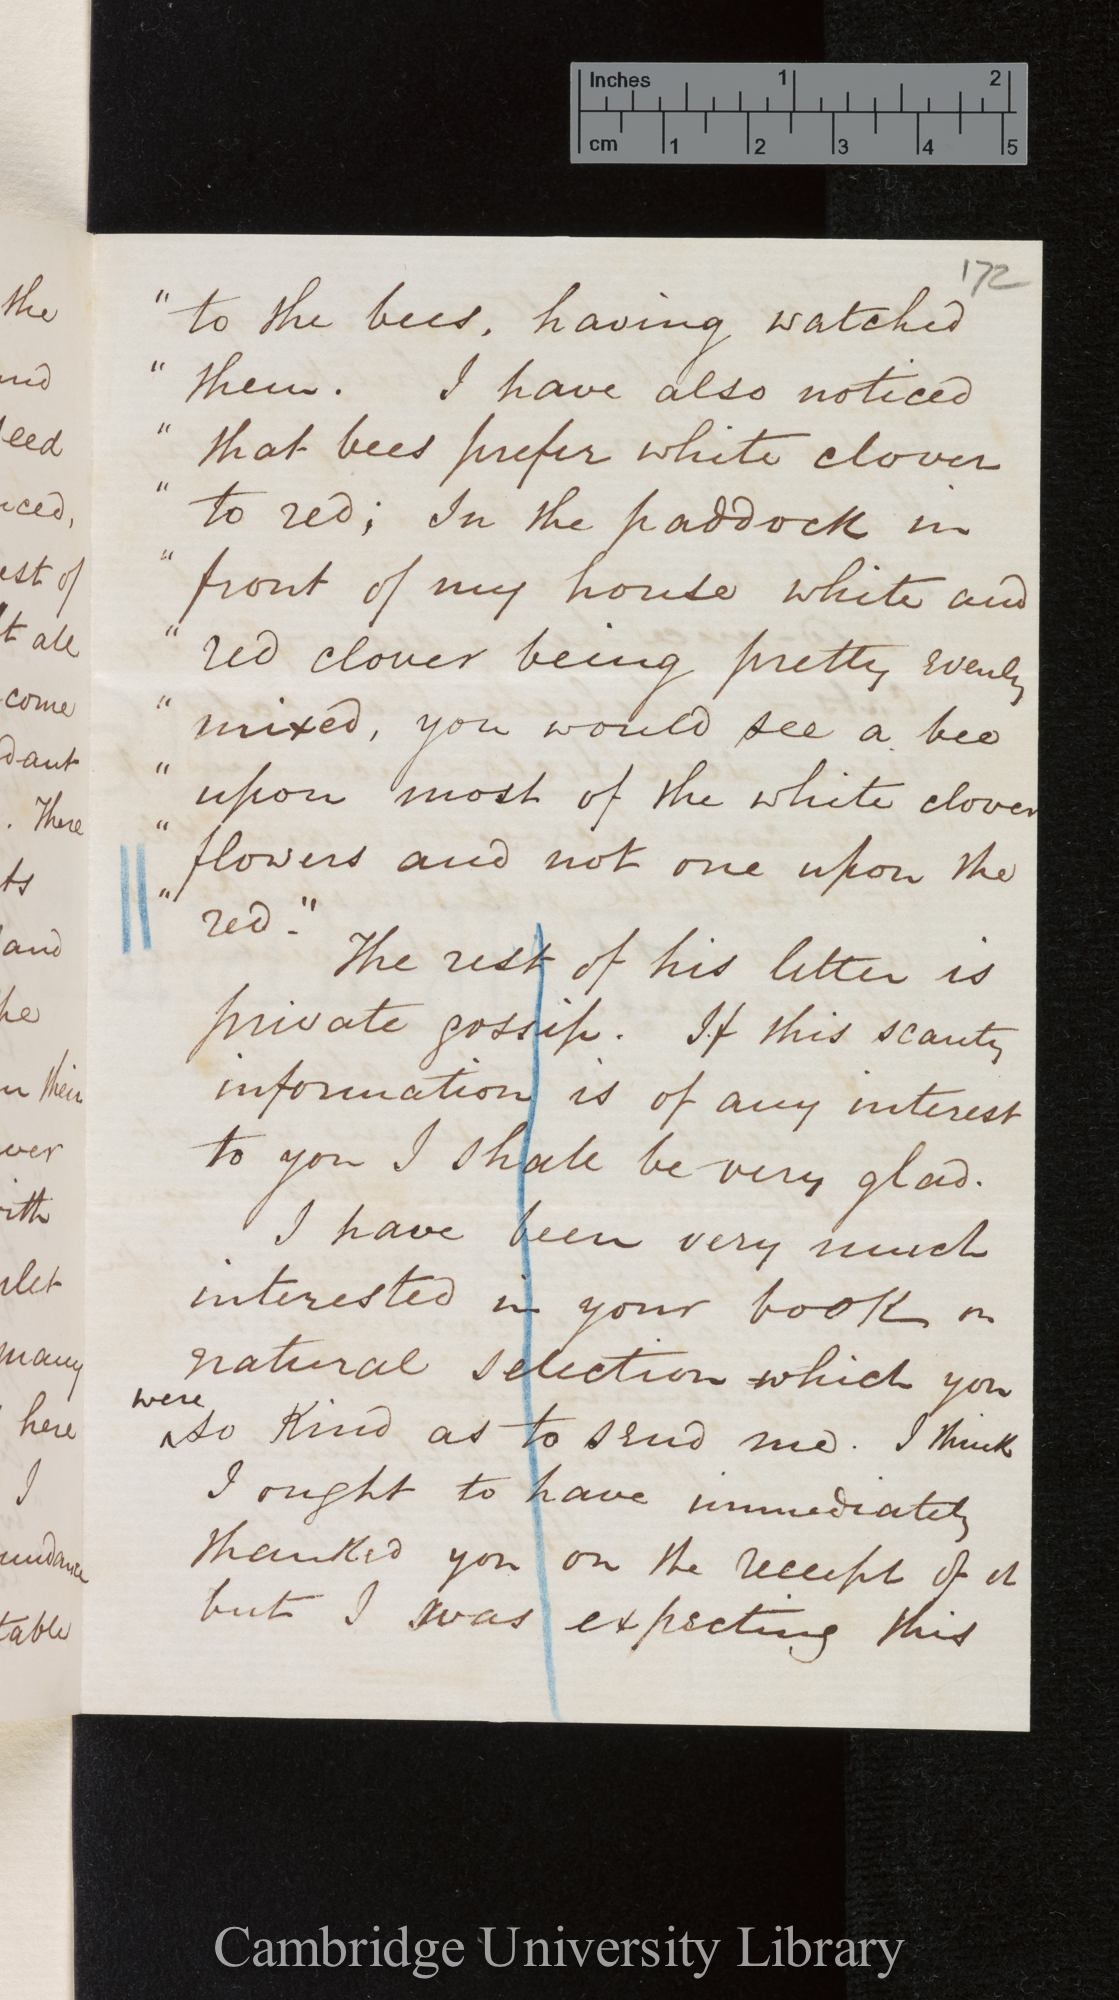 Inches 1 2
cm 1 2 3 4 5
172
the
and
uced,
est of
t all
come
dant
. There
ts
and
he
n their
ver
with
rlet
many
here
I
undance
table
" to the bees, having watched
" them. I have also noticed
" that bees prefer white clover
" to red; In the paddock in
" front of my house white and
" red clover being pretty evenly
" mixed, you would see a bee
" upon most of the white clover
" flowers and not one upon the
" red."
The rest of his letter is
private gossip. If this scanty
information is of any interest
to you I shall be very glad.
I have been very much
interested in your book on
natural selection which you
were
^so kind as to send me. I think
I ought to have immediately
thanked you on the receipt of it
but I was expecting this
Cambridge University Library